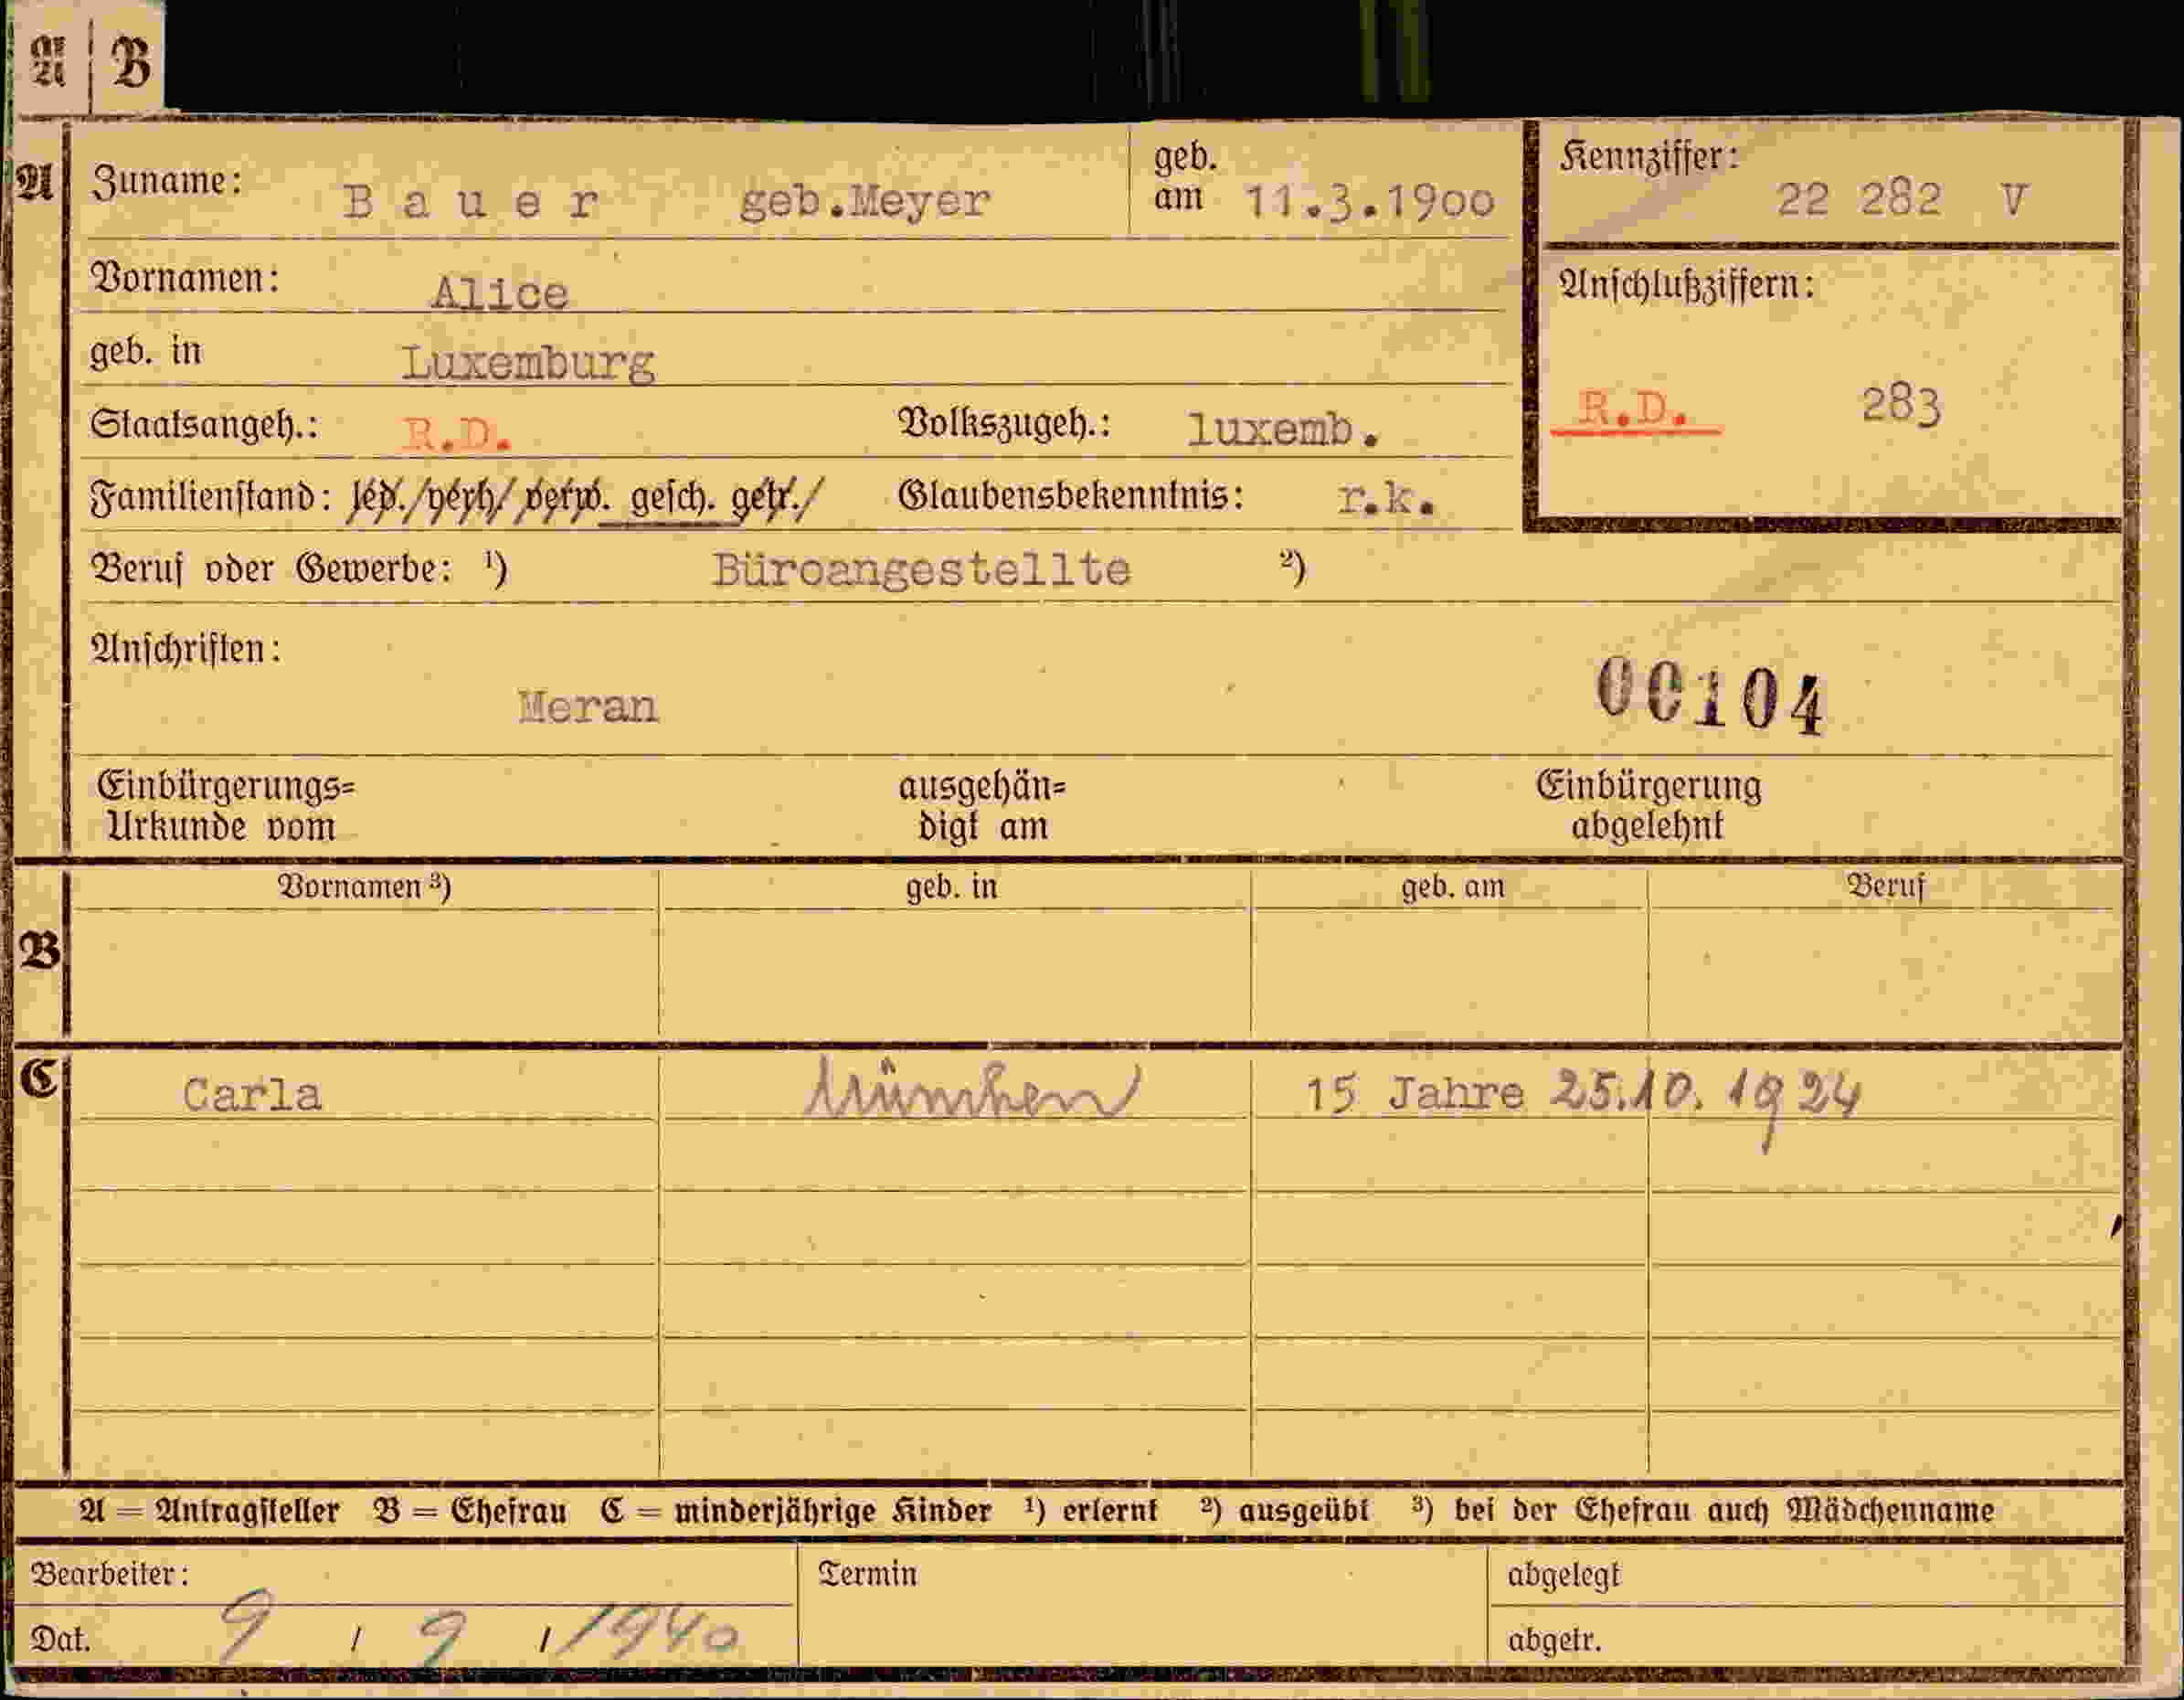 A B
A Zuname: Bauer geb.Meyer geb. am 11.3.1900 Kennziffer: 22 282 V
Vornamen: Alice Anschlußziffern:
geb. in Luxemburg
Staatsangeh.: R.D. Volkszugeh.: luxemb. R.D. 283
Familienstand: led./verh/ verw. gesch. getr./ Glaubensbekenntnis: r.k.
Beruf oder Gewerbe: ¹) Büroangestellte ²)
Anschriften:
Meran 00104
Einbürgerungs= ausgehän= Einbürgerung
Urkunde vom digt am abgelehnt
Vornamen ³) geb. in geb. am Beruf
B
C Carla München 15 Jahre 25.10.1924
A = Antragsteller B = Ehefrau C = minderjährige Kinder ¹) erlernt ²) ausgeübt ³) bei der Ehefrau auch Mädchenname
Bearbeiter: Termin abgelegt
Dat. 9 / 9 / 1940 abgetr.